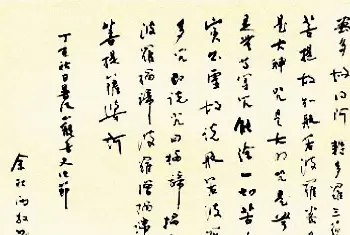 故得阿耨多羅三藐
菩提故知般若波羅蜜多
是大神咒是大明咒是無
是無等等咒能除一切苦
實不虛故說般若波羅
多咒即說咒曰揭諦揭
波羅揭諦波羅僧揭諦
菩提薩婆訶
丁亥秋日
余